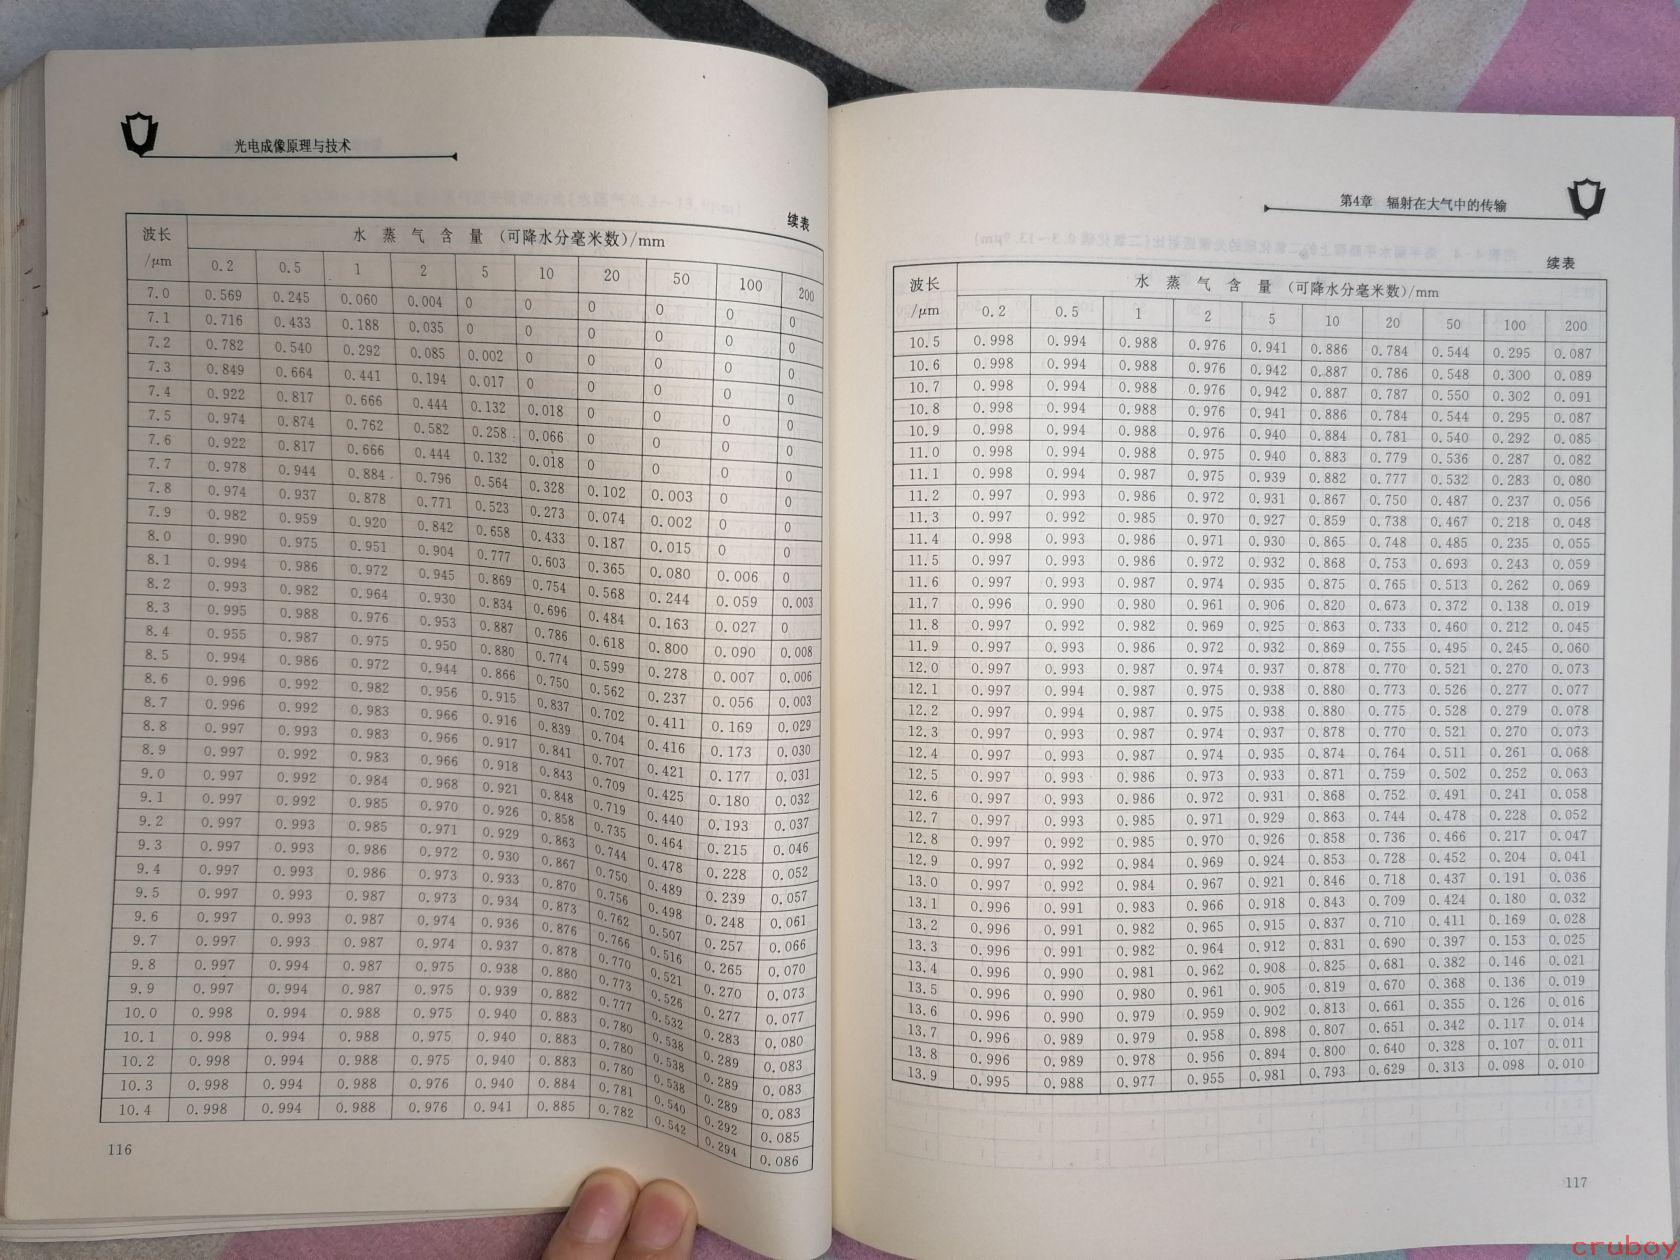 光电成像原理与技术
续表
波长 /μm 水 蒸 气 含 量 (可降水分毫米数)/mm
0.2 0.5 1 2 5 10 20 50 100 200
7.0 0.569 0.245 0.060 0.004 0 0 0 0 0 0
7.1 0.716 0.433 0.188 0.035 0 0 0 0 0 0
7.2 0.782 0.540 0.292 0.085 0.002 0 0 0 0 0
7.3 0.849 0.664 0.441 0.194 0.017 0 0 0 0 0
7.4 0.922 0.817 0.666 0.444 0.132 0.018 0 0 0 0
7.5 0.974 0.874 0.762 0.582 0.258 0.066 0 0 0 0
7.6 0.922 0.817 0.666 0.444 0.132 0.018 0 0 0 0
7.7 0.978 0.944 0.884 0.796 0.564 0.328 0.102 0.003 0 0
7.8 0.974 0.937 0.878 0.771 0.523 0.273 0.074 0.002 0 0
7.9 0.982 0.959 0.920 0.842 0.658 0.433 0.187 0.015 0 0
8.0 0.990 0.975 0.951 0.904 0.777 0.603 0.365 0.080 0.006 0
8.1 0.994 0.986 0.972 0.945 0.869 0.754 0.568 0.244 0.059 0.003
8.2 0.993 0.982 0.964 0.930 0.834 0.696 0.484 0.163 0.027 0
8.3 0.995 0.988 0.976 0.953 0.887 0.786 0.618 0.800 0.090 0.008
8.4 0.955 0.987 0.975 0.950 0.880 0.774 0.599 0.278 0.007 0.006
8.5 0.994 0.986 0.972 0.944 0.866 0.750 0.562 0.237 0.056 0.003
8.6 0.996 0.992 0.982 0.956 0.915 0.837 0.702 0.411 0.169 0.029
8.7 0.996 0.992 0.983 0.966 0.916 0.839 0.704 0.416 0.173 0.030
8.8 0.997 0.993 0.983 0.966 0.917 0.841 0.707 0.421 0.177 0.031
8.9 0.997 0.992 0.983 0.966 0.918 0.843 0.709 0.425 0.180 0.032
9.0 0.997 0.992 0.984 0.968 0.921 0.848 0.719 0.440 0.193 0.037
9.1 0.997 0.992 0.985 0.970 0.926 0.858 0.735 0.464 0.215 0.046
9.2 0.997 0.993 0.985 0.971 0.929 0.863 0.744 0.478 0.228 0.052
9.3 0.997 0.993 0.986 0.972 0.930 0.867 0.750 0.489 0.239 0.057
9.4 0.997 0.993 0.986 0.973 0.933 0.870 0.756 0.498 0.248 0.061
9.5 0.997 0.993 0.987 0.973 0.934 0.873 0.762 0.507 0.257 0.066
9.6 0.997 0.993 0.987 0.974 0.936 0.876 0.766 0.516 0.265 0.070
9.7 0.997 0.993 0.987 0.974 0.937 0.878 0.770 0.521 0.270 0.073
9.8 0.997 0.994 0.987 0.975 0.938 0.880 0.773 0.526 0.277 0.077
9.9 0.997 0.994 0.987 0.975 0.939 0.882 0.777 0.532 0.283 0.080
10.0 0.998 0.994 0.988 0.975 0.940 0.883 0.780 0.538 0.289 0.083
10.1 0.998 0.994 0.988 0.975 0.940 0.883 0.780 0.538 0.289 0.083
10.2 0.998 0.994 0.988 0.975 0.940 0.883 0.780 0.538 0.289 0.083
10.3 0.998 0.994 0.988 0.976 0.940 0.884 0.781 0.540 0.292 0.085
10.4 0.998 0.994 0.988 0.976 0.941 0.885 0.782 0.542 0.294 0.086
116
第4章 辐射在大气中的传输
续表
波长 /μm 水 蒸 气 含 量 (可降水分毫米数)/mm
0.2 0.5 1 2 5 10 20 50 100 200
10.5 0.998 0.994 0.988 0.976 0.941 0.886 0.784 0.544 0.295 0.087
10.6 0.998 0.994 0.988 0.976 0.942 0.887 0.786 0.548 0.300 0.089
10.7 0.998 0.994 0.988 0.976 0.942 0.887 0.787 0.550 0.302 0.091
10.8 0.998 0.994 0.988 0.976 0.941 0.886 0.784 0.544 0.295 0.087
10.9 0.998 0.994 0.988 0.976 0.940 0.884 0.781 0.540 0.292 0.085
11.0 0.998 0.994 0.988 0.975 0.940 0.883 0.779 0.536 0.287 0.082
11.1 0.998 0.994 0.987 0.975 0.939 0.882 0.777 0.532 0.283 0.080
11.2 0.997 0.993 0.986 0.972 0.931 0.867 0.750 0.487 0.237 0.056
11.3 0.997 0.992 0.985 0.970 0.927 0.859 0.738 0.467 0.218 0.048
11.4 0.998 0.993 0.986 0.971 0.930 0.865 0.748 0.485 0.235 0.055
11.5 0.997 0.993 0.986 0.972 0.932 0.868 0.753 0.693 0.243 0.059
11.6 0.997 0.993 0.987 0.974 0.935 0.875 0.765 0.513 0.262 0.069
11.7 0.996 0.990 0.980 0.961 0.906 0.820 0.673 0.372 0.138 0.019
11.8 0.997 0.992 0.982 0.969 0.925 0.863 0.733 0.460 0.212 0.045
11.9 0.997 0.993 0.986 0.972 0.932 0.869 0.755 0.495 0.245 0.060
12.0 0.997 0.993 0.987 0.974 0.937 0.878 0.770 0.521 0.270 0.073
12.1 0.997 0.994 0.987 0.975 0.938 0.880 0.773 0.526 0.277 0.077
12.2 0.997 0.994 0.987 0.975 0.938 0.880 0.775 0.528 0.279 0.078
12.3 0.997 0.993 0.987 0.974 0.937 0.878 0.770 0.521 0.270 0.073
12.4 0.997 0.993 0.987 0.974 0.935 0.874 0.764 0.511 0.261 0.068
12.5 0.997 0.993 0.986 0.973 0.933 0.871 0.759 0.502 0.252 0.063
12.6 0.997 0.993 0.986 0.972 0.931 0.868 0.752 0.491 0.241 0.058
12.7 0.997 0.993 0.985 0.971 0.929 0.863 0.744 0.478 0.228 0.052
12.8 0.997 0.992 0.985 0.970 0.926 0.858 0.736 0.466 0.217 0.047
12.9 0.997 0.992 0.984 0.969 0.924 0.853 0.728 0.452 0.204 0.041
13.0 0.997 0.992 0.984 0.967 0.921 0.846 0.718 0.437 0.191 0.036
13.1 0.996 0.991 0.983 0.966 0.918 0.843 0.709 0.424 0.180 0.032
13.2 0.996 0.991 0.982 0.965 0.915 0.837 0.710 0.411 0.169 0.028
13.3 0.996 0.991 0.982 0.964 0.912 0.831 0.690 0.397 0.153 0.025
13.4 0.996 0.990 0.981 0.962 0.908 0.825 0.681 0.382 0.146 0.021
13.5 0.996 0.990 0.980 0.961 0.905 0.819 0.670 0.368 0.136 0.019
13.6 0.996 0.990 0.979 0.959 0.902 0.813 0.661 0.355 0.126 0.016
13.7 0.996 0.989 0.979 0.958 0.898 0.807 0.651 0.342 0.117 0.014
13.8 0.996 0.989 0.978 0.956 0.894 0.800 0.640 0.328 0.107 0.011
13.9 0.995 0.988 0.977 0.955 0.981 0.793 0.629 0.313 0.098 0.010
117
cruboy